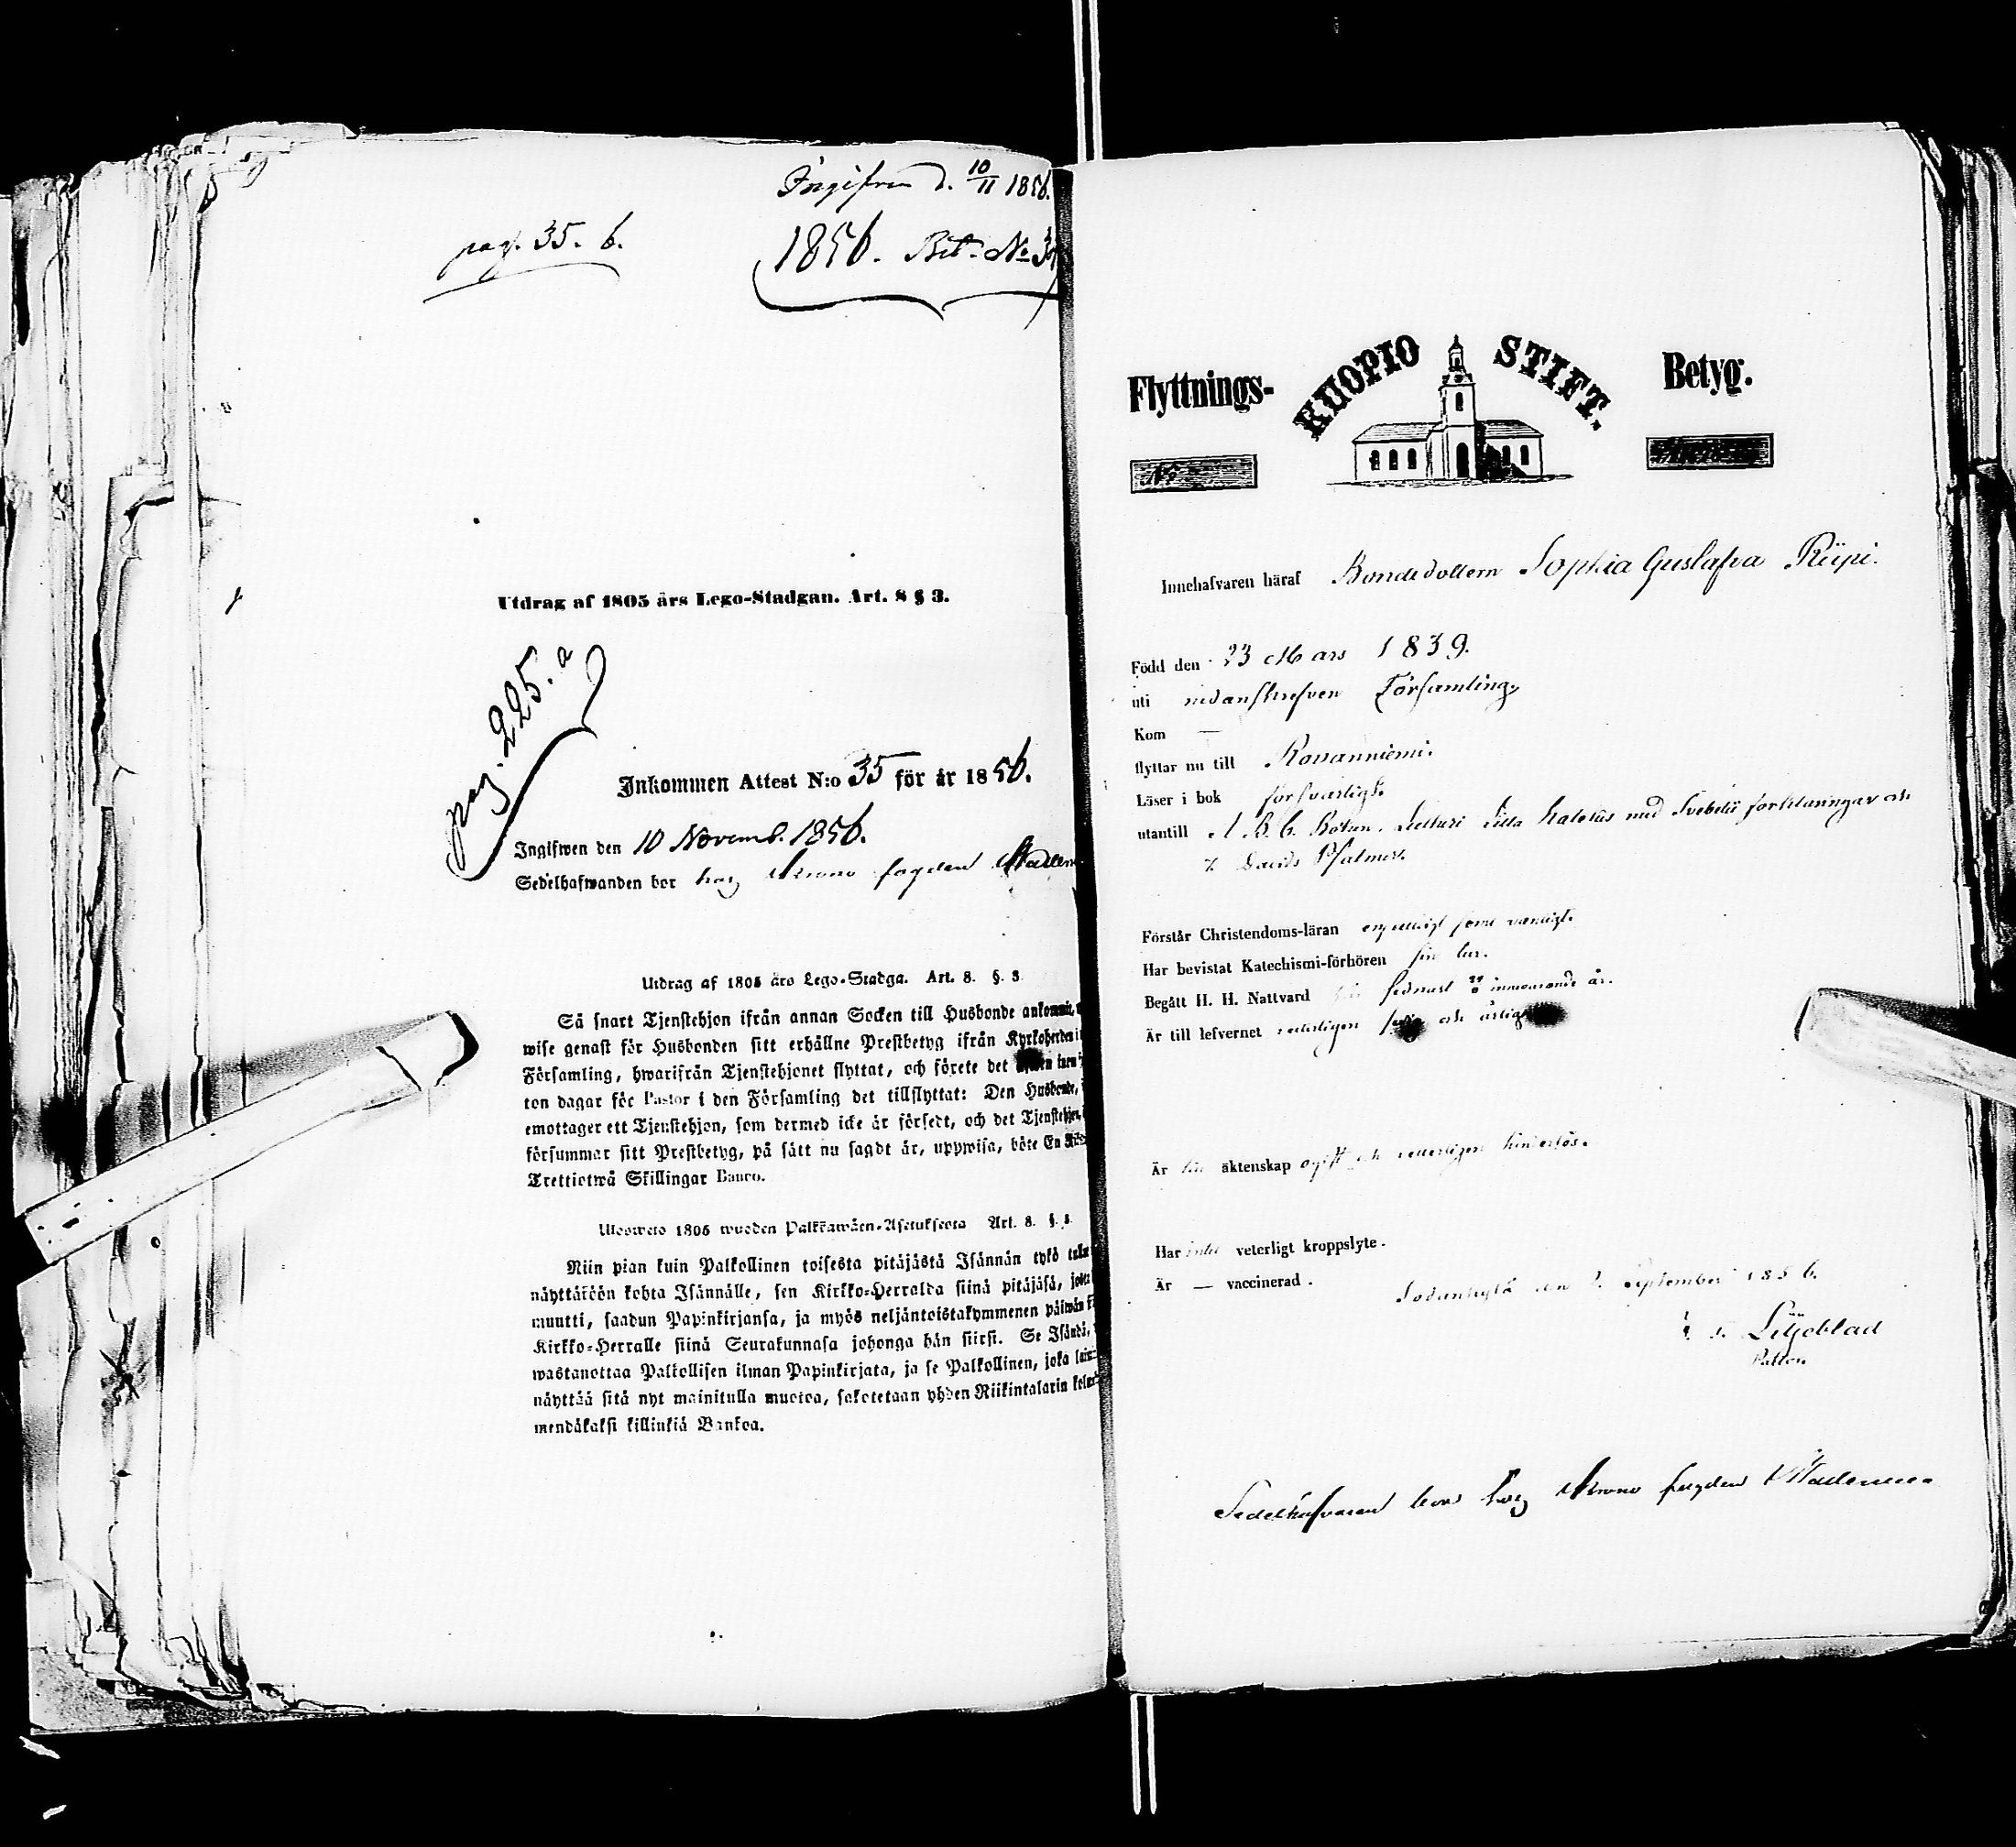 Ingifven d. 10/11 1856.
pag. 35. b.
1856. Bet. No 35
Utdrag af 1805 års Lego-Stadgan. Art. 8 § 3.
pag. 225. a
Inkommen Attest N:o 35 för år 1856.
Ingifwen den 10 Novemb. 1856.
Sedelhafwanden bor hos Krono fogden
Utdrag af 1805 års Lego-Stadga. Art. 8. §. 3
Så snart Tjenstehjon ifrån annan Socken till Husbonde
wise genast för Husbonden sitt erhållne Prestbetyg ifrån Kyrkoherden i
Församling, hwarifrån Tjenstehjonet flyttat, och förete det
ton dagar för Pastor i den Församling det tillflyttat: Den Husbonde,
emottager ett Tjenstehjon, som dermed icke är försedt, och det Tjenstehjon,
försummar sitt Prestbetyg, på sätt nu sagdt är, uppwisa, böte En
Trettiotwå Skillingar Banco.
Ulosweto 1805 wuoden Palkkawäen-Asetuksesta Art. 8. §.
Niin pian kuin Palkollinen toisesta pitäjästä Isännän tykö
näyttäköön kohta Isännälle, sen Kirkko-Herralda siinä pitäjäsä,
muutti, saadun Papinkirjansa, ja myös neljäntoistakymmenen päiwän
Kirkko-Herralle siinä Seurakunnasa johonga hän siirsi. Se Isändä,
wastanottaa Palkollisen ilman Papinkirjata, ja se Palkollinen, joka
näyttää sitä nyt mainitulla muotoa, sakotetaan yhden Riikintalarin
mendäkaksi killinkiä Bankoa.
Flyttnings- KUOPIO STIFT. Betyg.
Innehafvaren häraf Bondedottern Sophia Gustafva Riipi.
Född den 23 Mars 1839.
uti nedanskrefven Församling.
Kom —
flyttar nu till Rovaniemi.
Läser i bok försvarligt.
utantill A. B. C. Boken. Lutheri Lilla Kateches med Svebelii förklaringar och
7. Davids Psalmer.
Förstår Christendoms-läran
Har bevistat Katechismi-förhören
Begått H. H. Nattvard sednast innevarande år.
Är till lefvernet veterligen och ärlig
Är till äktenskap ogift och veterligen hinderlös.
Har intet veterligt kroppslyte.
Är — vaccinerad.
Sodankylä den September 1856.
Liljeblad
Pastor.
Sedelhafvaren bor hos Krono fogden